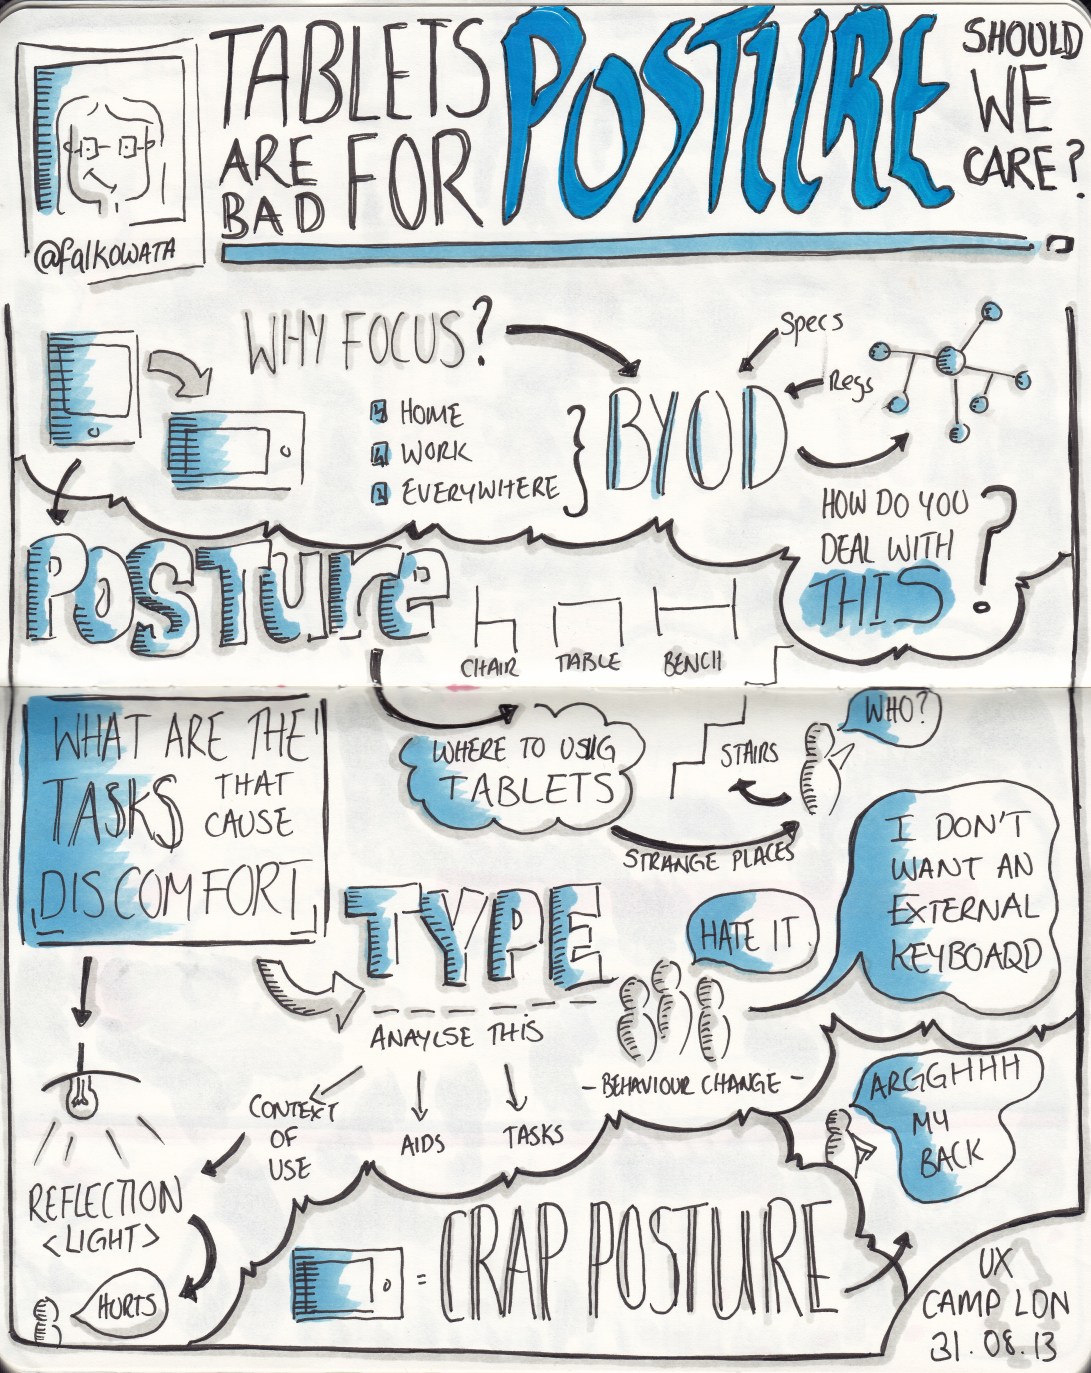 TABLETS
ARE
BAD
FOR
POSTURE
SHOULD
WE
CARE?
@falkowata
WHY FOCUS?
HOME
WORK
EVERYWHERE
BYOD
Specs
Regs
HOW DO YOU
DEAL WITH
THIS?
POSTure
CHAIR
TABLE
BENCH
WHAT ARE THE
TASKS THAT
CAUSE
DISCOMFORT
WHERE TO USIG
TABLETS
STAIRS
WHO?
STRANGE PLACES
I DON'T
WANT AN
EXTERNAL
KEYBOARD
HATE IT
TYPE
ANAYLSE THIS
- BEHAVIOUR CHANGE -
CONTEXT
OF
USE
AIDS
TASKS
ARGGHHH
MY
BACK
REFLECTION
<LIGHT>
HURTS
= CRAP POSTURE
UX
CAMP LON
31.08.13